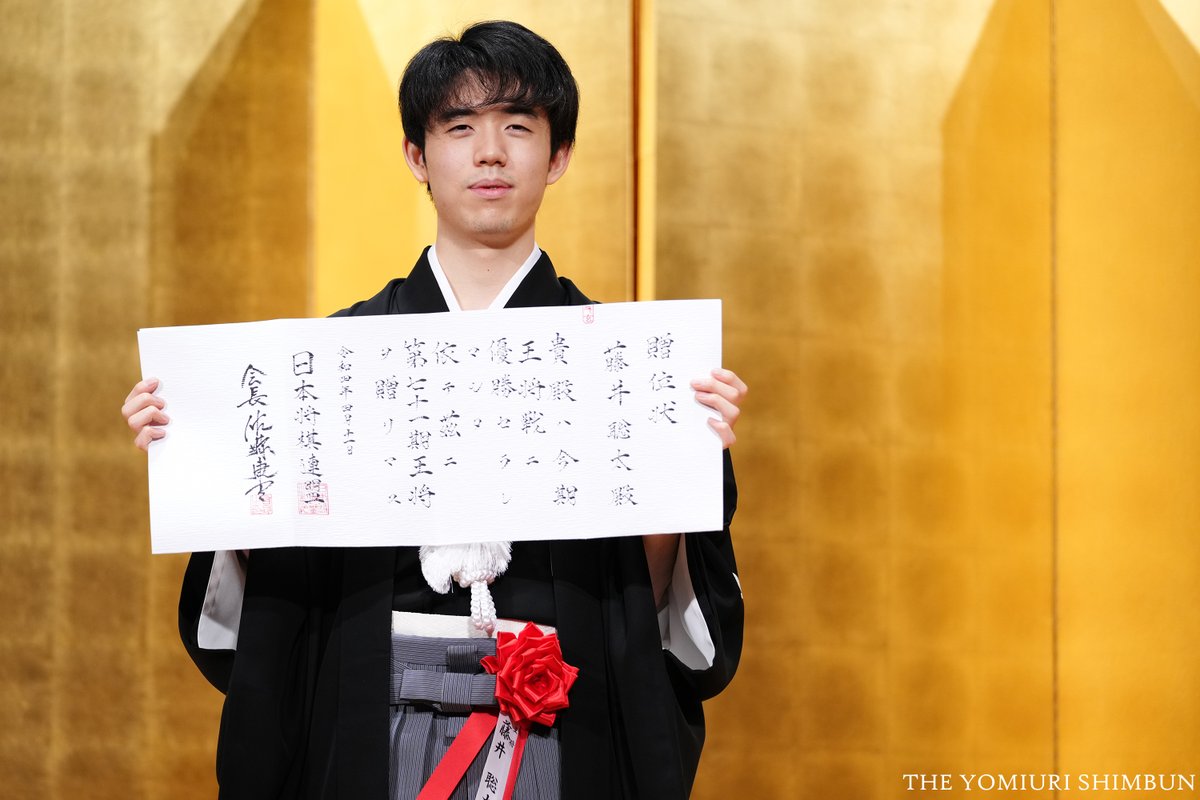 贈位状
藤井聡太殿
貴殿ハ今期
王将戦ニ
優勝セラレ
マシタ
依テ茲ニ
第七十一期王将
ヲ贈リマス
令和四年四月十一日
日本将棋連盟
会長 佐藤康光
藤井 聡
THE YOMIURI SHIMBUN